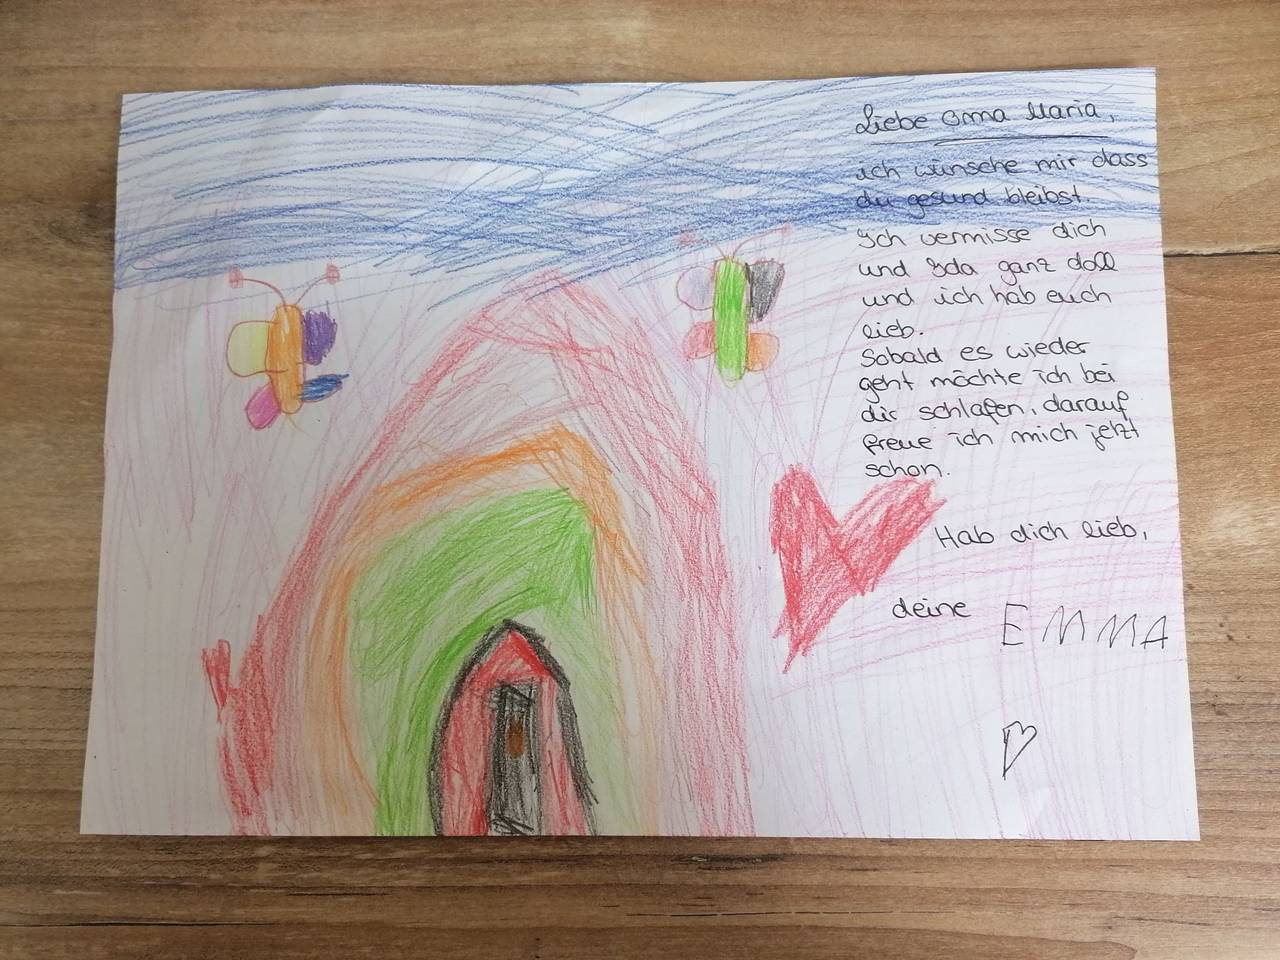 Liebe Oma Maria,
ich wünsche mir dass
du gesund bleibst.
Ich vermisse dich
und Ida ganz doll
und ich hab euch
lieb.
Sobald es wieder
geht möchte ich bei
dir schlafen, darauf
freue ich mich jetzt
schon.
Hab dich lieb,
deine EMMA